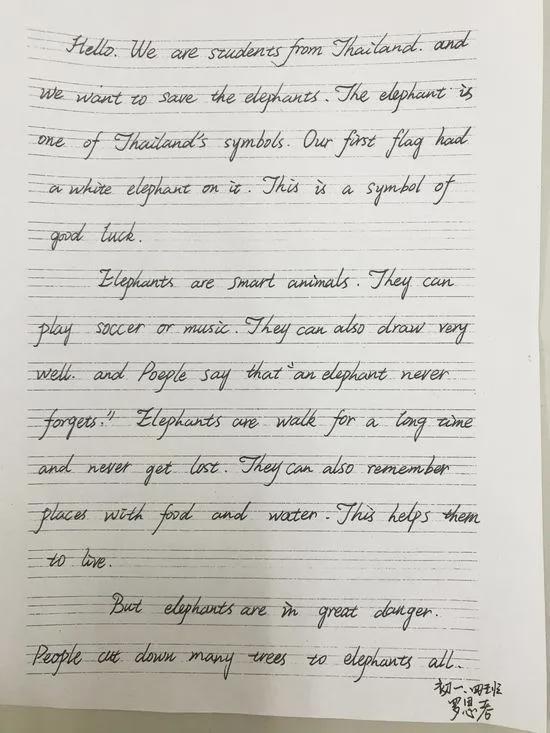 Hello. We are students from Thailand. and
we want to save the elephants. The elephant is
one of Thailand's symbols. Our first flag had
a white elephant on it. This is a symbol of
good luck.
Elephants are smart animals. They can
play soccer or music. They can also draw very
well. and Poeple say that "an elephant never
forgets." Elephants are walk for a long time
and never get lost. They can also remember
places with food and water. This helps them
to live.
But elephants are in great danger.
People cut down many trees to elephants all.
初一、四班
罗思